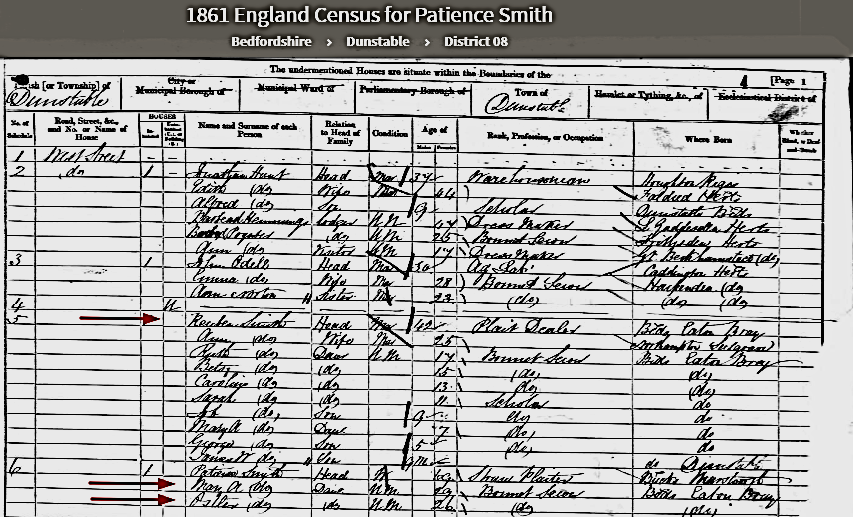 1861 England Census for Patience Smith
Bedfordshire > Dunstable > District 08
The undermentioned Houses are situate within the Boundaries of the
4 [Page 1
[or Township] of
City or Municipal Borough of
Municipal Ward of
Parliamentary Borough of
Town of
Hamlet or Tything, &c., of
Ecclesiastical District of
Dunstable
Dunstable
No. of Schedule
Road, Street, &c., and No. or Name of House
HOUSES
Name and Surname of each Person
Relation to Head of Family
Condition
Age of
Males
Females
Rank, Profession, or Occupation
Where Born
1 West Street - -
2 do 1 - Jonathan Hunt Head Mar 37 Warehouseman Houghton Regis
Edith do Wife Mar 44 Herts
Alfred do Son 9 Scholar Dunstable Beds
Lodger U.M. Dress Maker Gaddesden Herts
do U.M. 25 Bonnet Sewer Herts
Ann do Visitor U.M. 17 Dress Maker Gt Berkhamstead do
3 1 John Odell Head Mar 30 Ag Lab Caddington Herts
Emma do Wife Mar 28 Bonnet Sewer Harpenden do
Sister 22 do do do
4 U
5 Reuben Smith Head Mar 42 Plait Dealer Beds Eaton Bray
Ann do Wife Mar 25 Northampton Sulgrave
Ruth do Daur U.M. 17 Bonnet Sewer Beds Eaton Bray
Betsy do do 15 do do
Caroline do do 13 do do
Sarah do do 11 Scholar do
do Son 9 do do
Mary A do Daur 7 do do
George do Son 5 do do
Son do Dunstable
6 1 Patience Smith Head Straw Plaiter Bucks Marsworth
Mary A do Daur U.M. 29 Bonnet Sewer Beds Eaton Bray
do do U.M. 26 do do